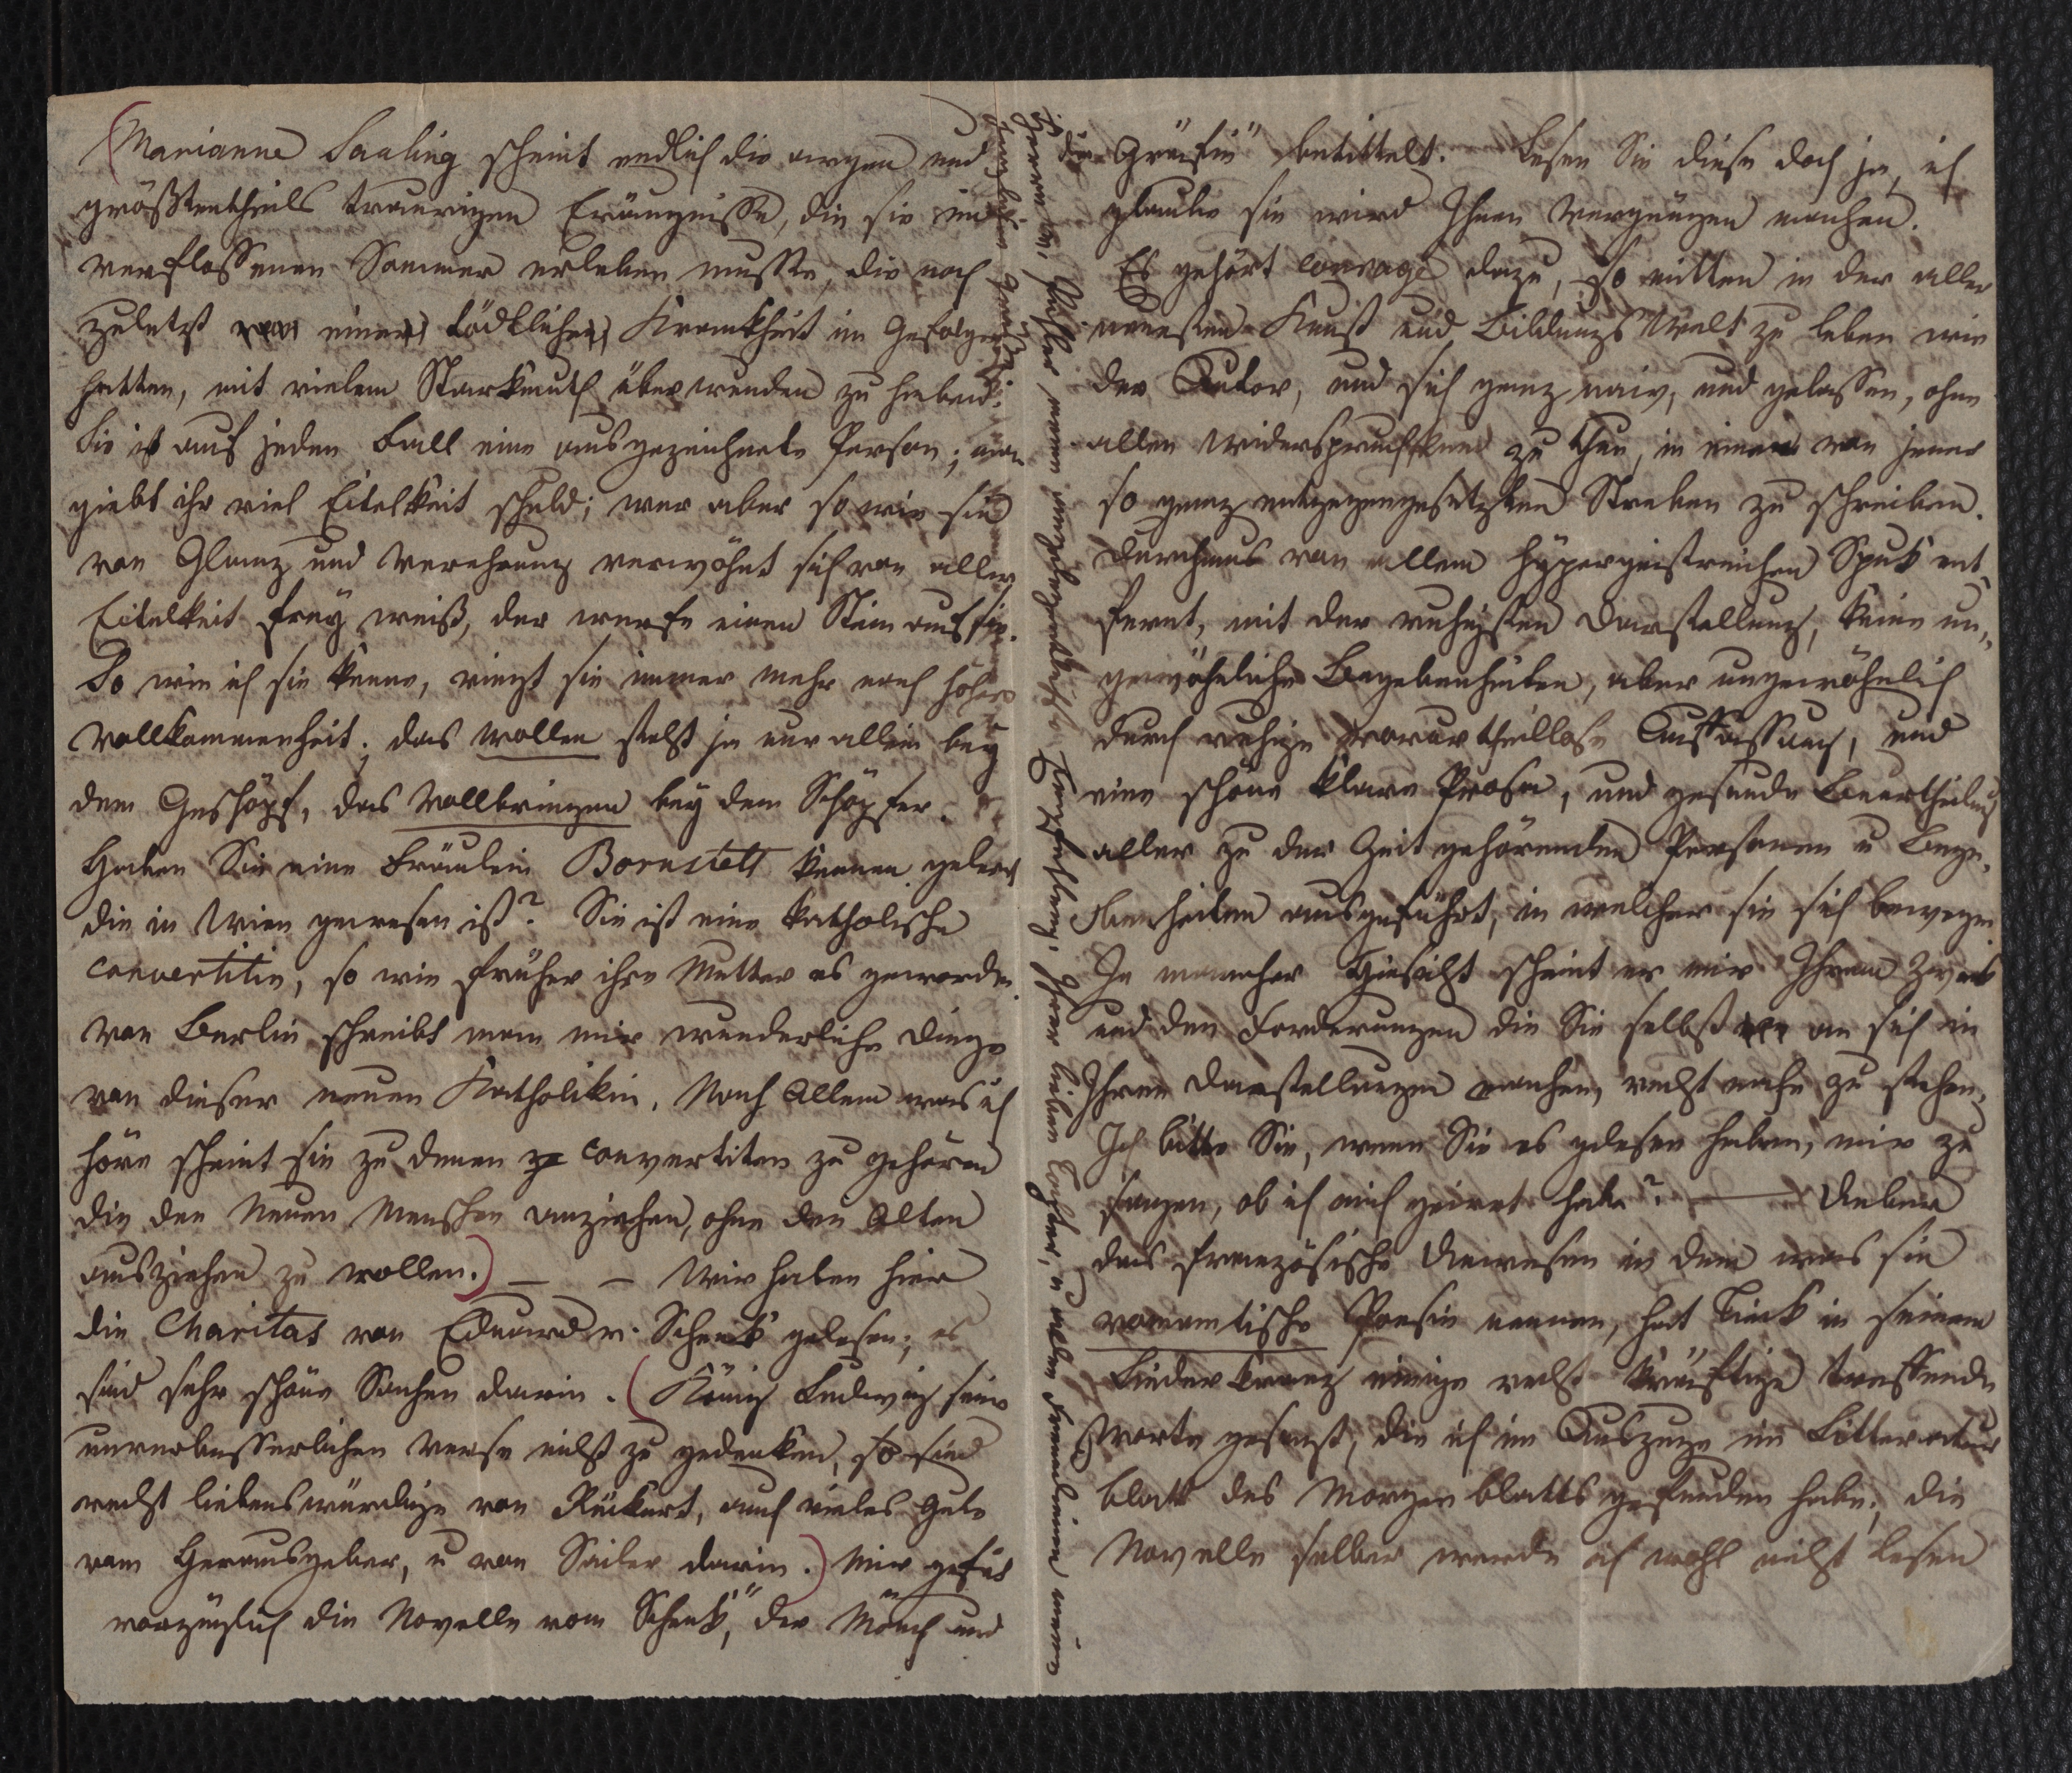 Marianne Saaling scheint endlich die argen und
größtentheils traurigen Eräugnisse, die sie im
verflossenen Sommer erleben mußte, die noch
zuletzt eine tödtliche Krankheit im Gefolge
hatten, mit vielem Starkmuth überwunden zu haben.
Sie ist auf jeden Fall eine ausgezeichnete Person; man
giebt ihr viel Eitelkeit schuld; wer aber so wie sie
von Glanz und Verehrung verwöhnt sich von aller
Eitelkeit frey weiß, der werfe einen Stein auf sie.
So wie ich sie kenne, ringt sie immer mehr nach höherer
Vollkommenheit; das wollen steht ja nur allein bey
dem Geschöpf, das Vollbringen bey dem Schöpfer.
Haben Sie eine Fräulein Bornstett kennen gelernt
die in Wien gewesen ist? Sie ist eine katholische
convertitin, so wie früher ihre Mutter es geworden.
Von Berlin schreibt man mir wunderliche Dinge
von dieser neuen Katholikin. Nach Allem was ich
höre scheint sie zu denen convertiten zu gehören
die den Neuen Menschen anziehen, ohne den Alten
ausziehen zu wollen.) — — Wir haben hier
die Charitas von Eduard v. Schenk gelesen; es
sind sehr schöne Sachen darin. (König Ludwig seine
unverbesserlichen Verse nicht zu gedenken, so sind
recht liebenswürdige von Rückert, auch vieles Gute
vom Herausgeber, u von Sailer darin.) Mir gefiel
vorzüglich die Novelle vom Schenk, "der Mönch und
die Gräfin" betittelt. Lesen Sie diese doch ja, ich
glaube sie wird Ihnen Vergnügen machen.
Es gehört courage dazu, so mitten in der aller
neuesten Kunst und Bildungs Welt zu leben wie
der Autor, und sich ganz naiv, und gelassen, ohne
allen Widerspruch zu thun, in einem von jener
so ganz entgegengesetzten Streben zu schreiben.
Durchaus von allem hypergeistreichen Spuk ent-
fernt, mit der ruhigsten Darstellung, keine un-
gewöhnliche Begebenheiten, aber ungewöhnlich
durch ruhige vorurtheillose Auffassung, und
eine schöne klare Prosa, und gesunde Beurtheilung
aller zu der Zeit gehörenden Personen u Bege-
benheiten ausgeführt, in welcher sie sich bewegen.
In mancher Hinsicht scheint er mir Ihrem Zweck
und den Forderungen die Sie selbst an sich in
Ihren Darstellungen machen, recht nahe zu stehen.
Ich bitte Sie, wenn Sie es gelesen haben, mir zu
sagen, ob ich mich geirrt habe? — Ueber
das französische Unwesen in dem was sie
romantische Poesie nennen, hat Tieck in seinem
Liederkranz einige recht kräftige treffende
Worte gesagt, die ich im Auszuge im Litteratur
blatt des Morgenblatts gefunden habe; die
Novelle selber werde ich wohl nicht lesen
Herrn v. Pilat meine angelegentlichste Empfehlung, Ihrer lieben Tochter, u allen Freundinnen meine
herzlichen Grüße